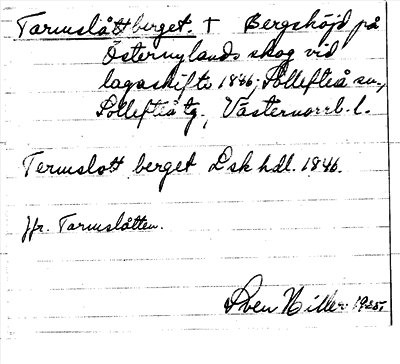 Tarmslåttberget. † Bergshöjd på
Östernylands skog vid
lagaskifte 1846; Sollefteå sn.,
Sollefteå tg., Västernorrl. l.
Termslott berget Lsk hdl. 1846.
Jfr. Tarmslåtten.
Sven Hiller 1925.